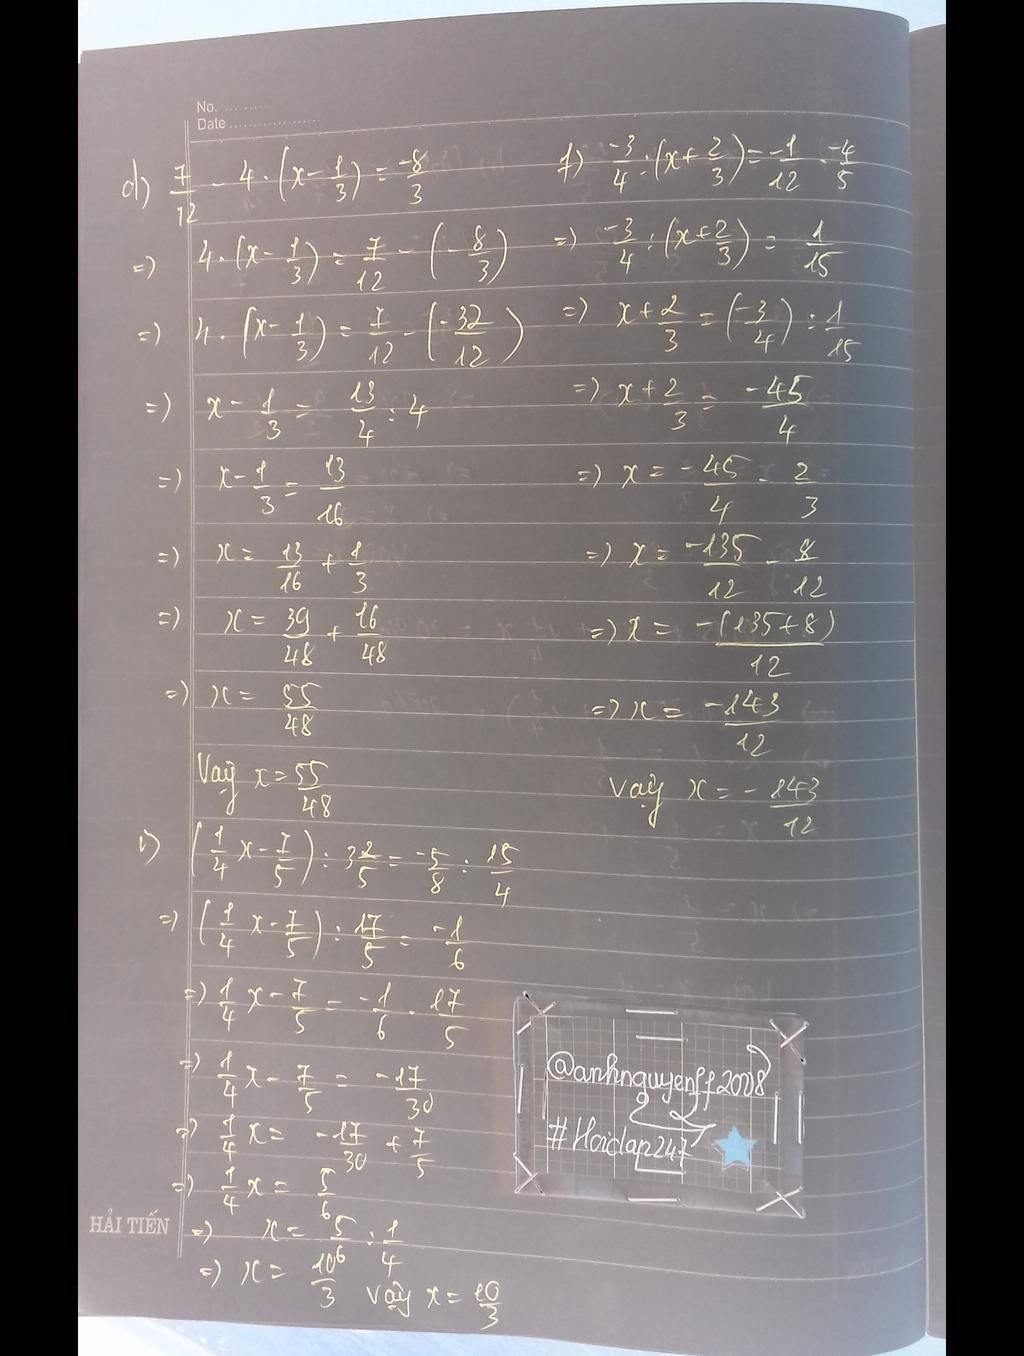 No. ..........
Date ..................
d) 7/12 - 4 · (x - 1/3) = -8/3
=) 4 · (x - 1/3) = 7/12 - (-8/3)
=) 4 · (x - 1/3) = 7/12 - (-32/12)
=) x - 1/3 = 13/4 : 4
=) x - 1/3 = 13/16
=) x = 13/16 + 1/3
=) x = 39/48 + 16/48
=) x = 55/48
Vậy x = 55/48
f) -3/4 : (x + 2/3) = -1/12 · -4/5
=) -3/4 : (x + 2/3) = 1/15
=) x + 2/3 = (-3/4) : 1/15
=) x + 2/3 = -45/4
=) x = -45/4 - 2/3
=) x = -135/12 - 8/12
=) x = -(135+8)/12
=) x = -143/12
Vậy x = -143/12
i) (1/4 x - 7/5) : 3 2/5 = -5/8 : 15/4
=) (1/4 x - 7/5) : 17/5 = -1/6
=) 1/4 x - 7/5 = -1/6 · 17/5
=) 1/4 x - 7/5 = -17/30
=) 1/4 x = -17/30 + 7/5
=) 1/4 x = 5/6
=) x = 5/6 : 1/4
=) x = 10/3 Vậy x = 10/3
@anhnguyenff2008
#Hoidap247
HẢI TIẾN